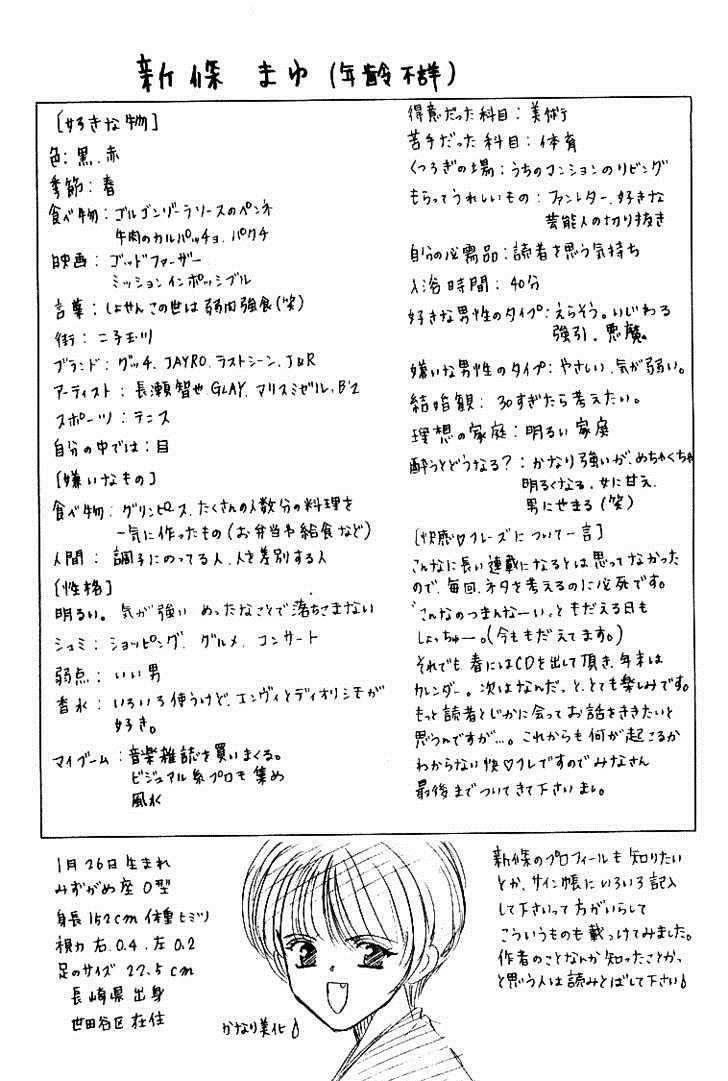 新條 まゆ (年齢不詳)
[好きな物]
色:黒、赤
季節:春
食べ物:ゴルゴンゾーラソースのペンネ
牛肉のカルパッチョ、パクチ
映画:ゴッドファーザー
ミッションインポッシブル
言葉:しょせんこの世は弱肉強食(笑)
街:二子玉川
ブランド:グッチ、JAYRO、ラストシーン、J&R
アーティスト:長瀬智也、GLAY、マリスミゼル、B'z
スポーツ:テニス
自分の中では:目
[嫌いなもの]
食べ物:グリンピース、たくさんの人数分の料理を
一気に作ったもの(お弁当や給食など)
人間:調子にのってる人、人を差別する人
[性格]
明るい。気が強い めったなことで落ちこまない
シュミ:ショッピング、グルメ、コンサート
弱点:いい男
香水:いろいろ使うけど、エンヴィとディオリシモが
好き。
マイブーム:音楽雑誌を買いまくる。
ビジュアル系プロモ集め
風水
得意だった科目:美術
苦手だった科目:体育
くつろぎの場:うちのマンションのリビング
もらってうれしいもの:ファンレター、好きな
芸能人の切り抜き
自分の必需品:読者を思う気持ち
入浴時間:40分
好きな男性のタイプ:えらそう。いじわる
強引、悪魔。
嫌いな男性のタイプ:やさしい、気が弱い。
結婚観:30すぎたら考えたい。
理想の家庭:明るい家庭
酔うとどうなる?:かなり強いが、めちゃくちゃ
明るくなる、女に甘え、
男にせまる(笑)
[快感♡フレーズについて一言]
こんなに長い連載になるとは思ってなかった
ので、毎回、ネタを考えるのに必死です。
「こんなのつまんなーい」ともだえる日も
しょっちゅー。(今ももだえてます。)
それでも春にはCDを出して頂き、年末は
カレンダー。次はなんだっ と、とても楽しみです。
もっと読者とじかに会ってお話をききたいと
思うんですが…。これからも何が起こるか
わからない快♡フレですのでみなさん
最後までついてきて下さいまし。
1月26日生まれ
みずがめ座 O型
身長152cm 体重ヒミツ
視力 右、0.4、左0.2
足のサイズ 22.5cm
長崎県出身
世田谷区在住
かなり美化♪
新條のプロフィールも知りたい
とか、サイン帳にいろいろ記入
して下さいって方がいらして
こういうものも載っけてみました。
作者のことなんか知ったことかっ
と思う人は読みとばして下さい♪